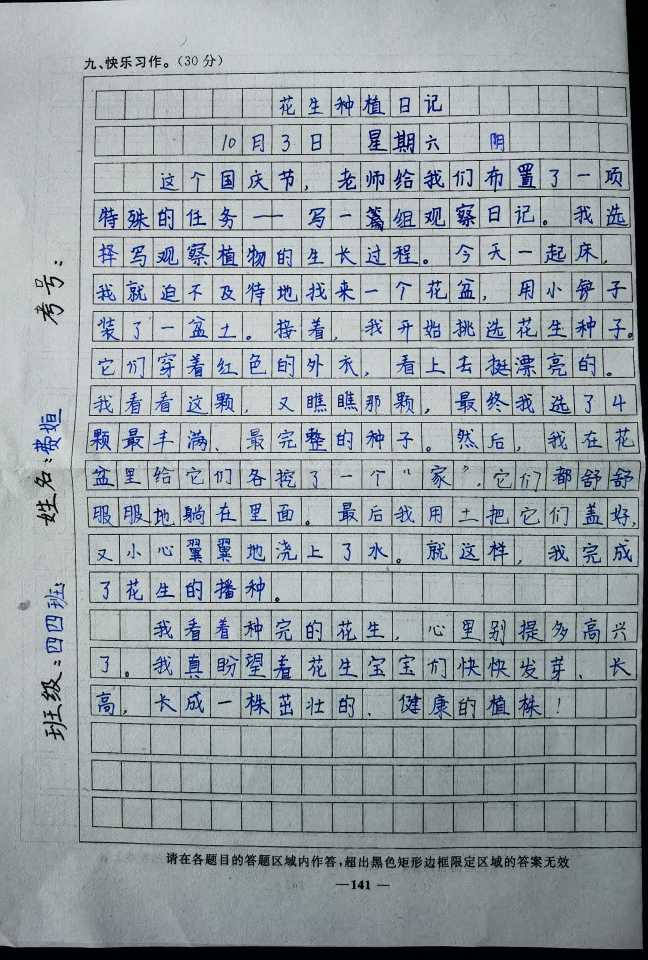 九、快乐习作。(30分)
花生种植日记
10月3日 星期六 阴
这个国庆节，老师给我们布置了一项
特殊的任务——写一篇组观察日记。我选
择写观察植物的生长过程。今天一起床，
我就迫不及待地找来一个花盆，用小铲子
装了一盆土。接着，我开始挑选花生种子。
它们穿着红色的外衣，看上去挺漂亮的。
我看看这颗，又瞧瞧那颗，最终我选了4
颗最丰满、最完整的种子。然后，我在花
盆里给它们各挖了一个“家”，它们都舒舒
服服地躺在里面。最后我用土把它们盖好，
又小心翼翼地浇上了水。就这样，我完成
了花生的播种。
我看着种完的花生，心里别提多高兴
了。我真盼望着花生宝宝们快快发芽、长
高，长成一株茁壮的、健康的植株！
请在各题目的答题区域内作答，超出黑色矩形边框限定区域的答案无效
—141—
班级：四四班 姓名：费烜 考号：